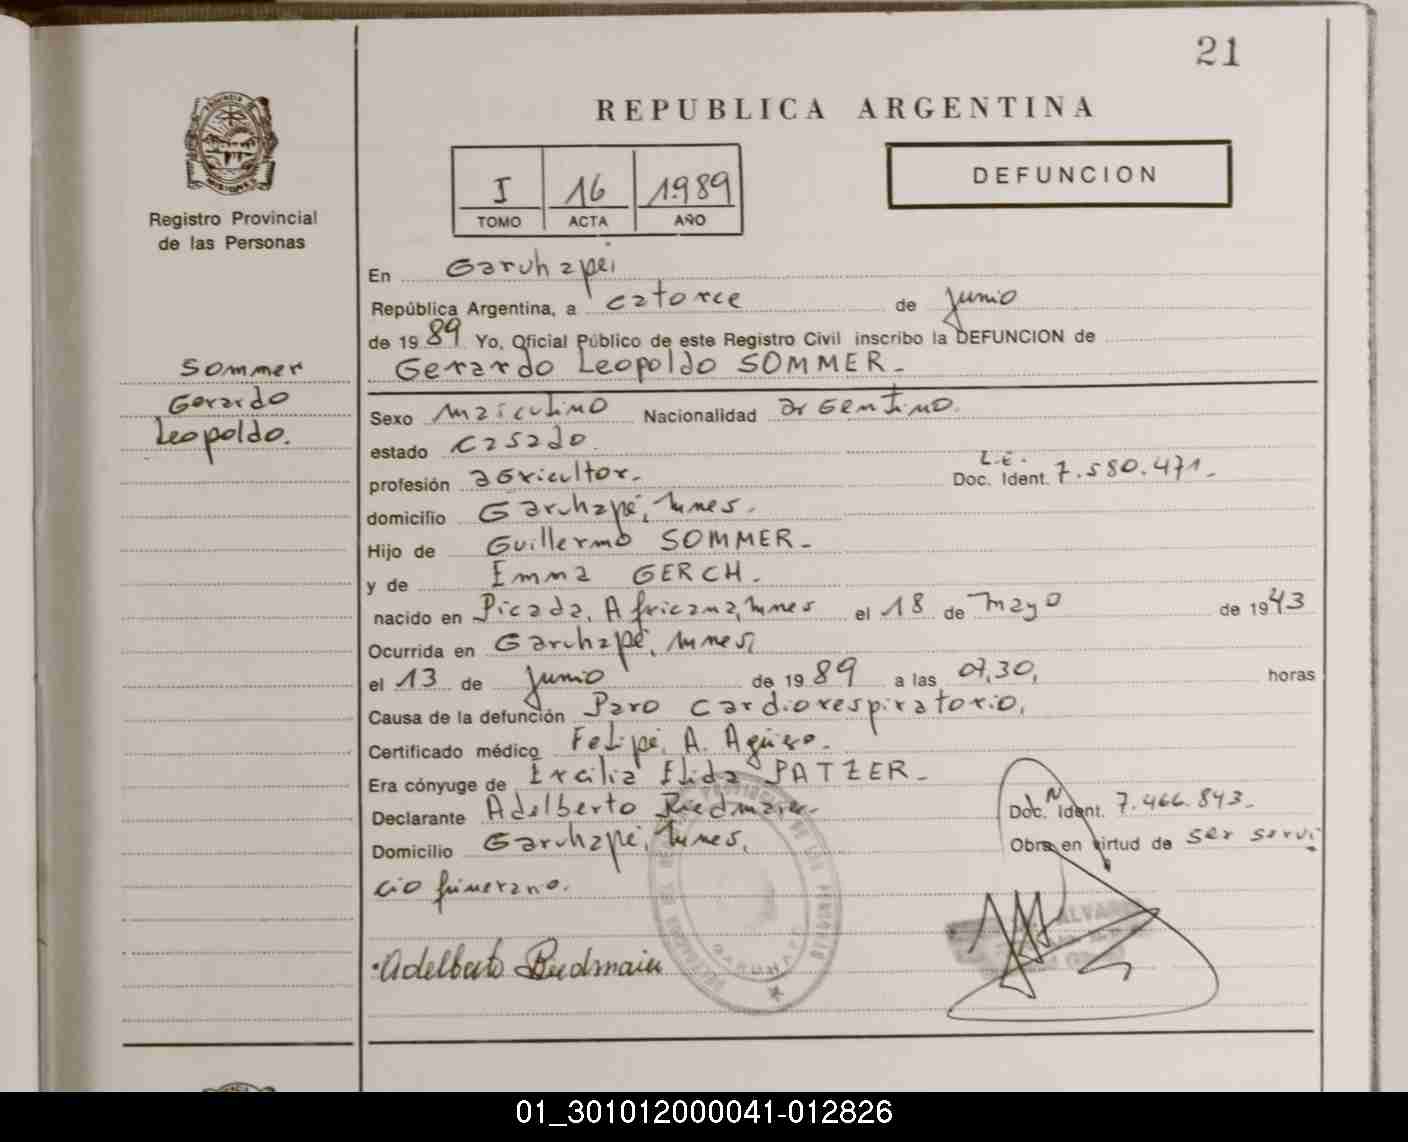 21
REPUBLICA ARGENTINA
DEFUNCION
I 16 1989
TOMO ACTA AÑO
Registro Provincial
de las Personas
En Garuhapei
República Argentina, a catorce de junio
de 19 89 Yo, Oficial Público de este Registro Civil inscribo la DEFUNCION de
Gerardo Leopoldo SOMMER.
Sommer
Gerardo
Leopoldo.
Sexo masculino Nacionalidad argentino.
estado casado
profesión agricultor. L.E. Doc. Ident. 7.580.471.
domicilio Garuhapé, Mnes.
Hijo de Guillermo SOMMER.
y de Emma GERCH.
nacido en Picada, Africana, Mnes el 18 de mayo de 1943
Ocurrida en Garuhapé, Mnes,
el 13 de junio de 19 89 a las 07,30, horas
Causa de la defunción Paro cardiorespiratorio,
Certificado médico Felipe, A. Agüero.
Era cónyuge de Ercilia Elida PATZER.
Declarante Adelberto Riedmaier Doc. Ident. 7.466.843.
Domicilio Garuhapé, Mnes, Obra en virtud de ser servi
cio funerario.
Adelberto Riedmaier
GARUHAPE
01_301012000041-012826